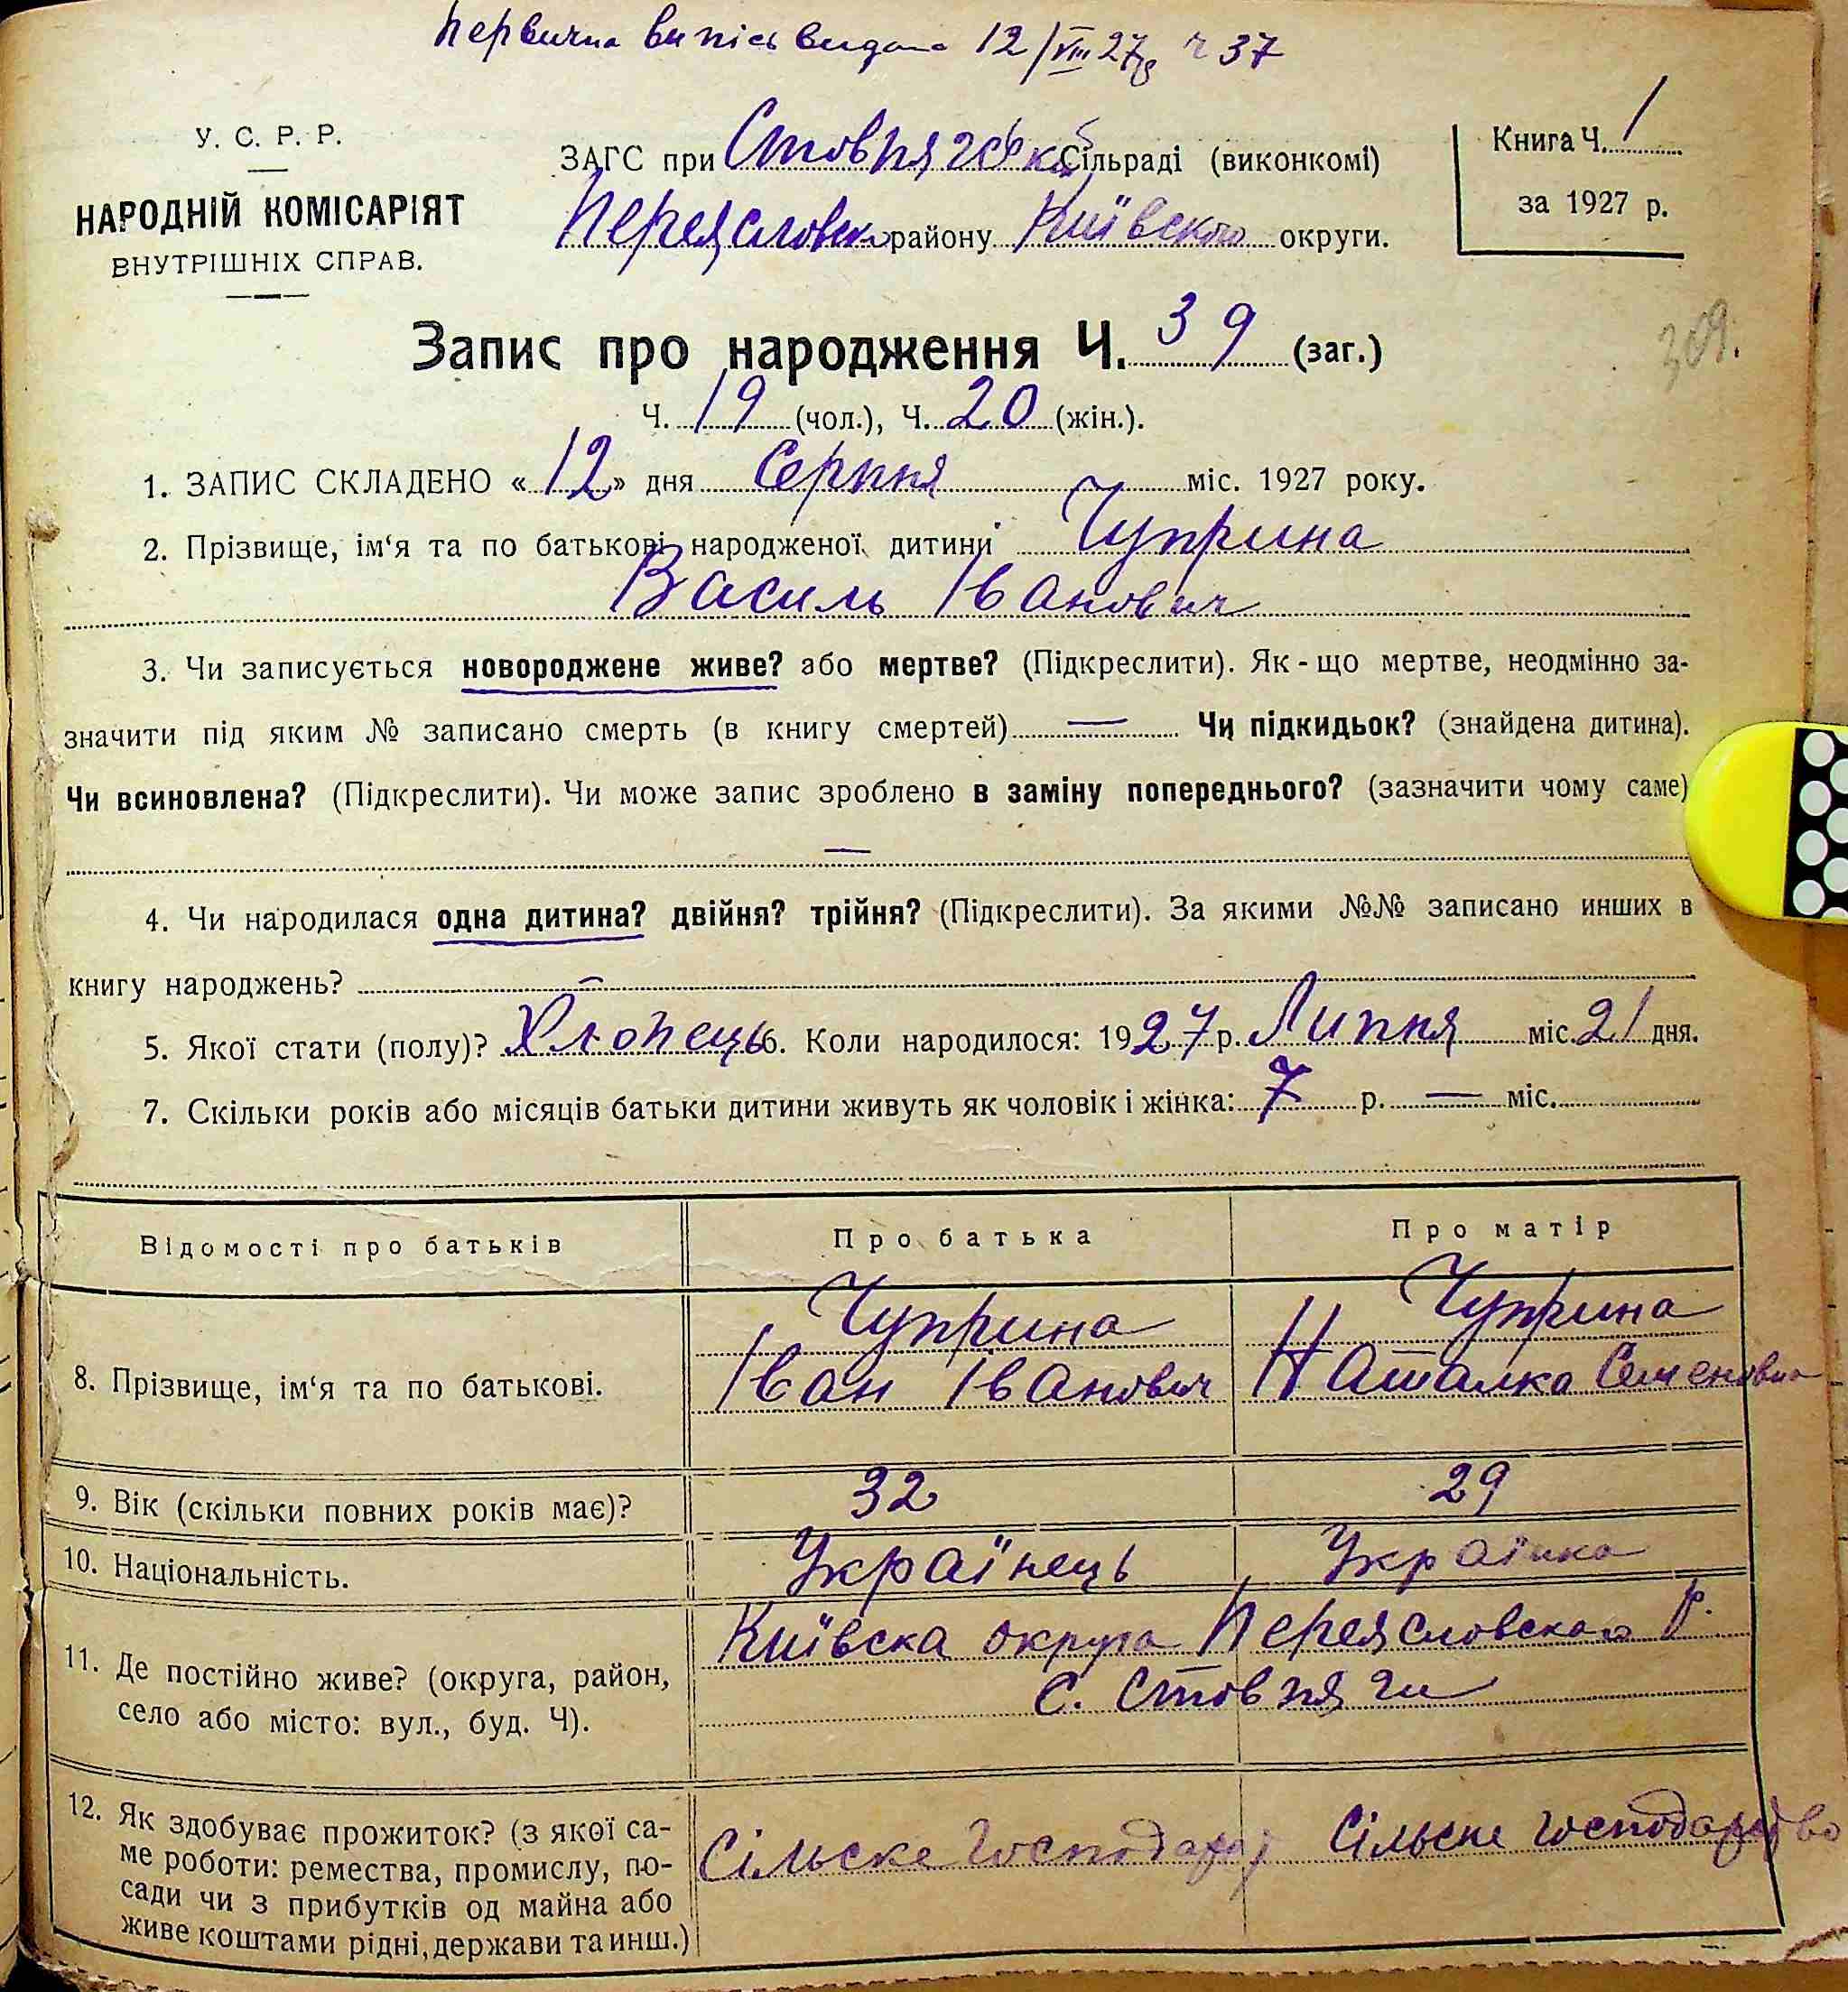 Первична випись видана 12/VIII 27р ч 37
У. С. Р. Р.
НАРОДНІЙ КОМІСАРІЯТ
ВНУТРІШНІХ СПРАВ.
ЗАГС при Стовпягській Сільраді (виконкомі)
Переяславськ району Київської округи.
Книга Ч. 1
за 1927 р.
309.
Запис про народження Ч. 39 (заг.)
Ч. 19 (чол.), Ч. 20 (жін.).
1. ЗАПИС СКЛАДЕНО «12» дня Серпня міс. 1927 року.
2. Прізвище, ім‘я та по батькові народженої дитини Чуприна
Василь Іванович
3. Чи записується новороджене живе? або мертве? (Підкреслити). Як-що мертве, неодмінно за-
значити під яким № записано смерть (в книгу смертей) — Чи підкидьок? (знайдена дитина).
Чи всиновлена? (Підкреслити). Чи може запис зроблено в заміну попереднього? (зазначити чому саме)
—
4. Чи народилася одна дитина? двійня? трійня? (Підкреслити). За якими №№ записано инших в
книгу народжень? —
5. Якої стати (полу)? Хлопець 6. Коли народилося: 1927 р. Липня міс. 21 дня.
7. Скільки років або місяців батьки дитини живуть як чоловік і жінка: 7 р. — міс.
Відомості про батьків Про батька Про матір
Чуприна Чуприна
8. Прізвище, ім‘я та по батькові. Іван Іванович Наталка Семеновна
9. Вік (скільки повних років має)? 32 29
10. Національність. Українець Українка
11. Де постійно живе? (округа, район, Київска округа Переясловского р.
село або місто: вул., буд. Ч). с. Стовпяги
12. Як здобуває прожиток? (з якої са-
ме роботи: ремества, промислу, по- Сільске Господар Сільске господарство
сади чи з прибутків од майна або
живе коштами рідні, держави та инш.)